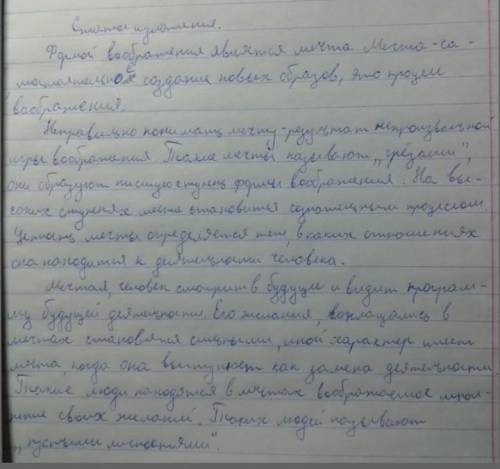 Сжатое изложение.
Формой воображения является мечта. Мечта - са-
мостоятельное создание новых образов, это процесс
воображения.
Неправильно понимать мечту - результат непроизвольной
игры воображения. Такие мечты называют „грёзами",
они образуют низшую ступень формы воображения. На вы-
соких ступенях мечта становится сознательным процессом.
Ценность мечты определяется тем, в каких отношениях
она находится к деятельности человека.
Мечтая, человек смотрит в будущее и видит програм-
му будущей деятельности. Его желания, воплощаясь в
мечтах становятся сильными, иной характер имеет
мечта, когда она выступает как замена деятельности
Такие люди находятся в мечтах воображаемое
своих желаний. Таких людей называют
„пустыми личностями".